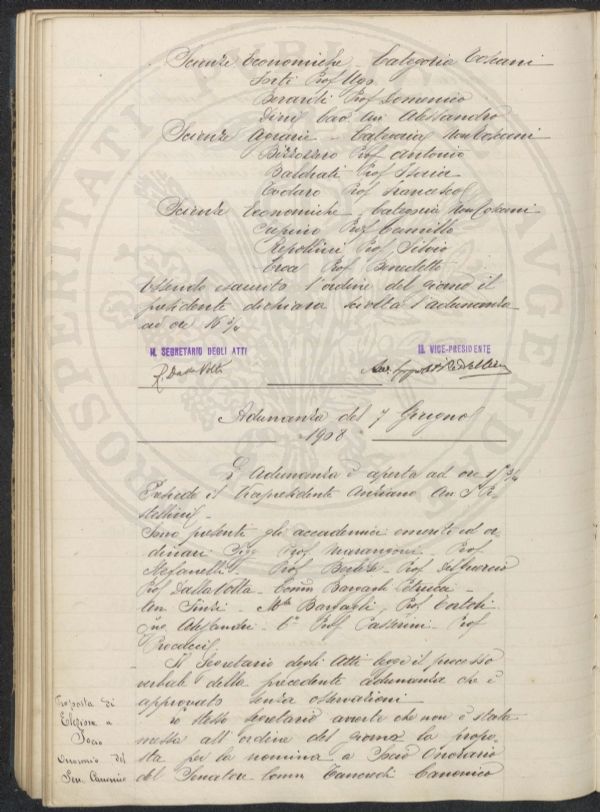 Scienze Economiche - Categoria Toscani
Forti Prof Ugo
Berardi Prof Domenico
Dini Cav Avv Alessandro
Scienze Agrarie - Categoria non Toscani
Bizzozzero Prof Antonio
Baldrati Prof Isaia
Todaro Prof Francesco
Scienze Economiche - Categoria non Toscani
Supino Prof Camillo
Prof Silvio
Croce Prof Benedetto
Essendo esaurito l'ordine del giorno il
presidente dichiara sciolta l'adunanza
ad ore 16 3/4
IL SEGRETARIO DEGLI ATTI
IL VICE-PRESIDENTE
R. Dalla Volta
Adunanza del 7 Giugno
1908
L'Adunanza è aperta ad ore 15 3/4
Presiede il Vicepresidente Anziano
Sono presenti gli accademici emeriti ed or-
dinari Prof Marangoni - Prof
Stefanelli - Prof Berlese - Prof
Prof Dalla Volta - Comm Bargagli Petrucci -
Avv Finzi - Mse Bargagli, Prof
Ing Alessandri - Cte Prof Passerini - Prof
Il Segretario degli Atti legge il processo
verbale della precedente adunanza che è
approvato senza osservazioni
Lo stesso segretario avverte che non è stata
messa all'ordine del giorno la propo-
sta per la nomina a Socio Onorario
del Senatore Comm Tancredi Canonico
Proposta di
Elezione a
Socio
Onorario del
Sen. Canonico
PROSPERITATI PUBLICAE AUGENDAE